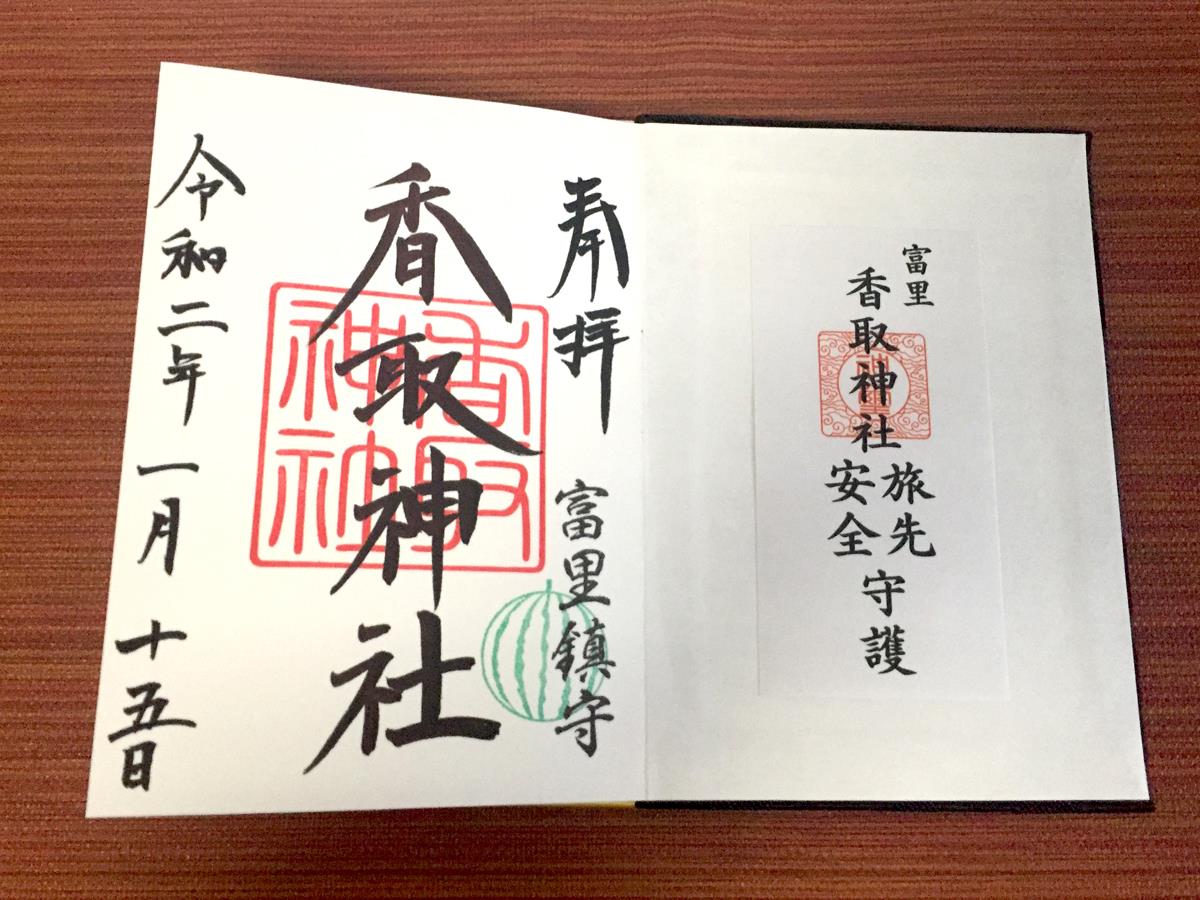 富里
香取神社
旅先
安全
守護
奉拝
富里鎮守
香取神社
香取神社
令和二年一月十五日